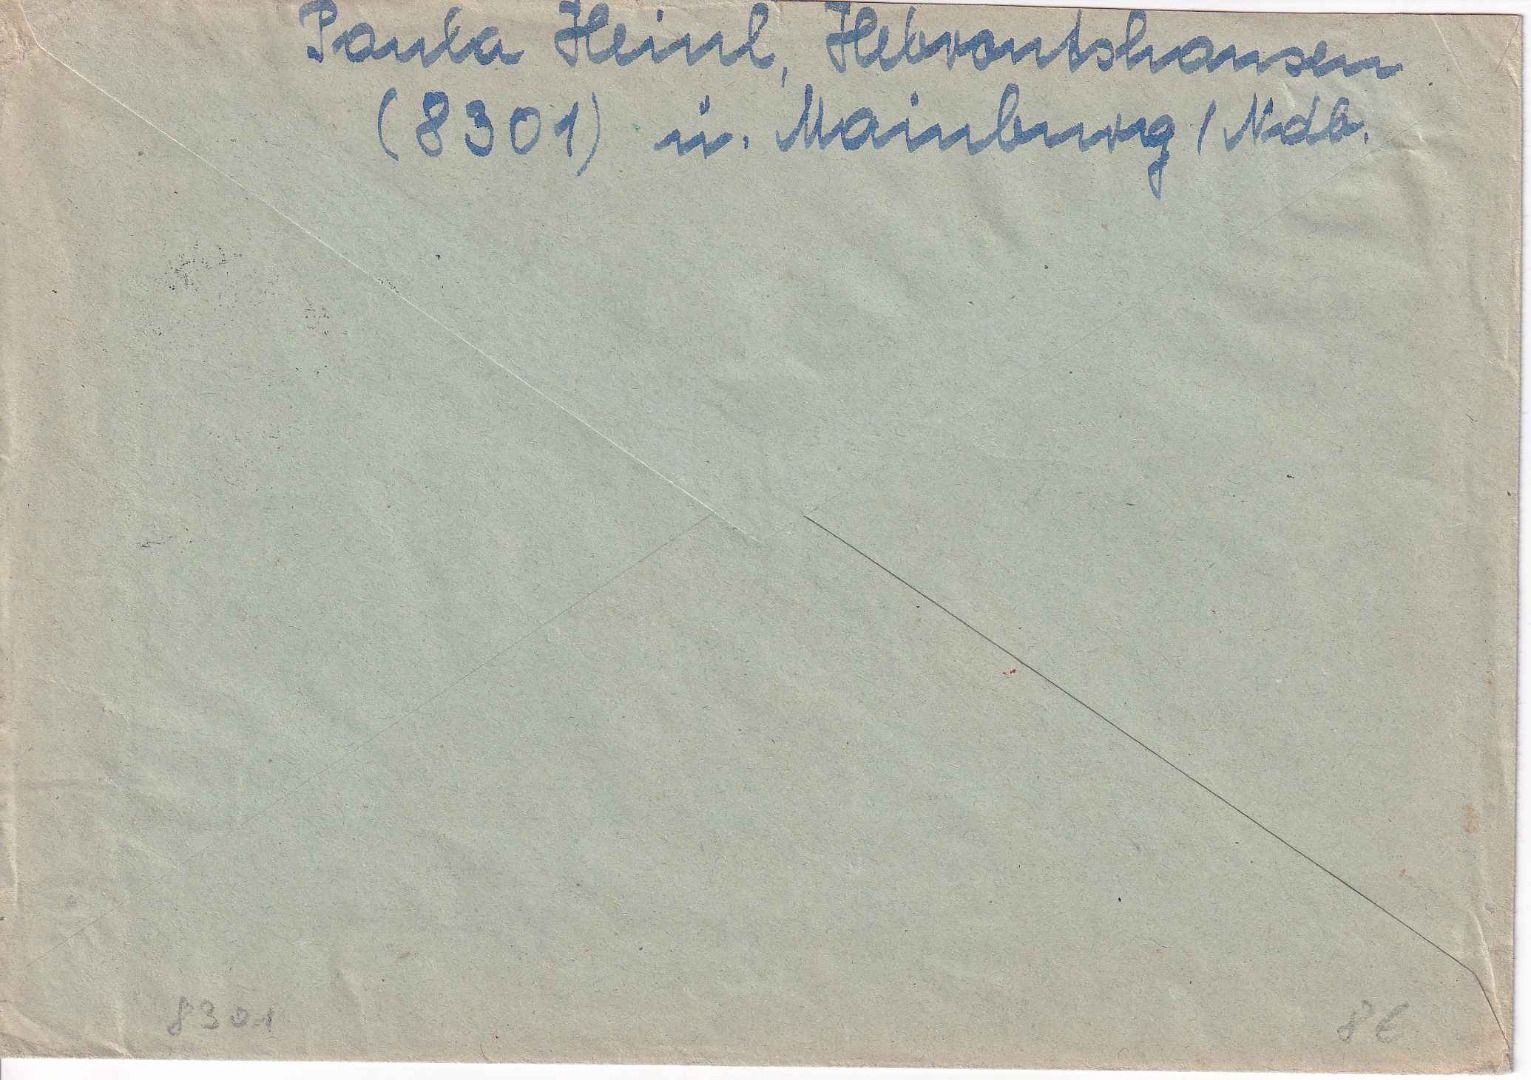 Paula Heinl, Hebrontshausen
(8301) ü. Mainburg / Ndb.
8301
8 €